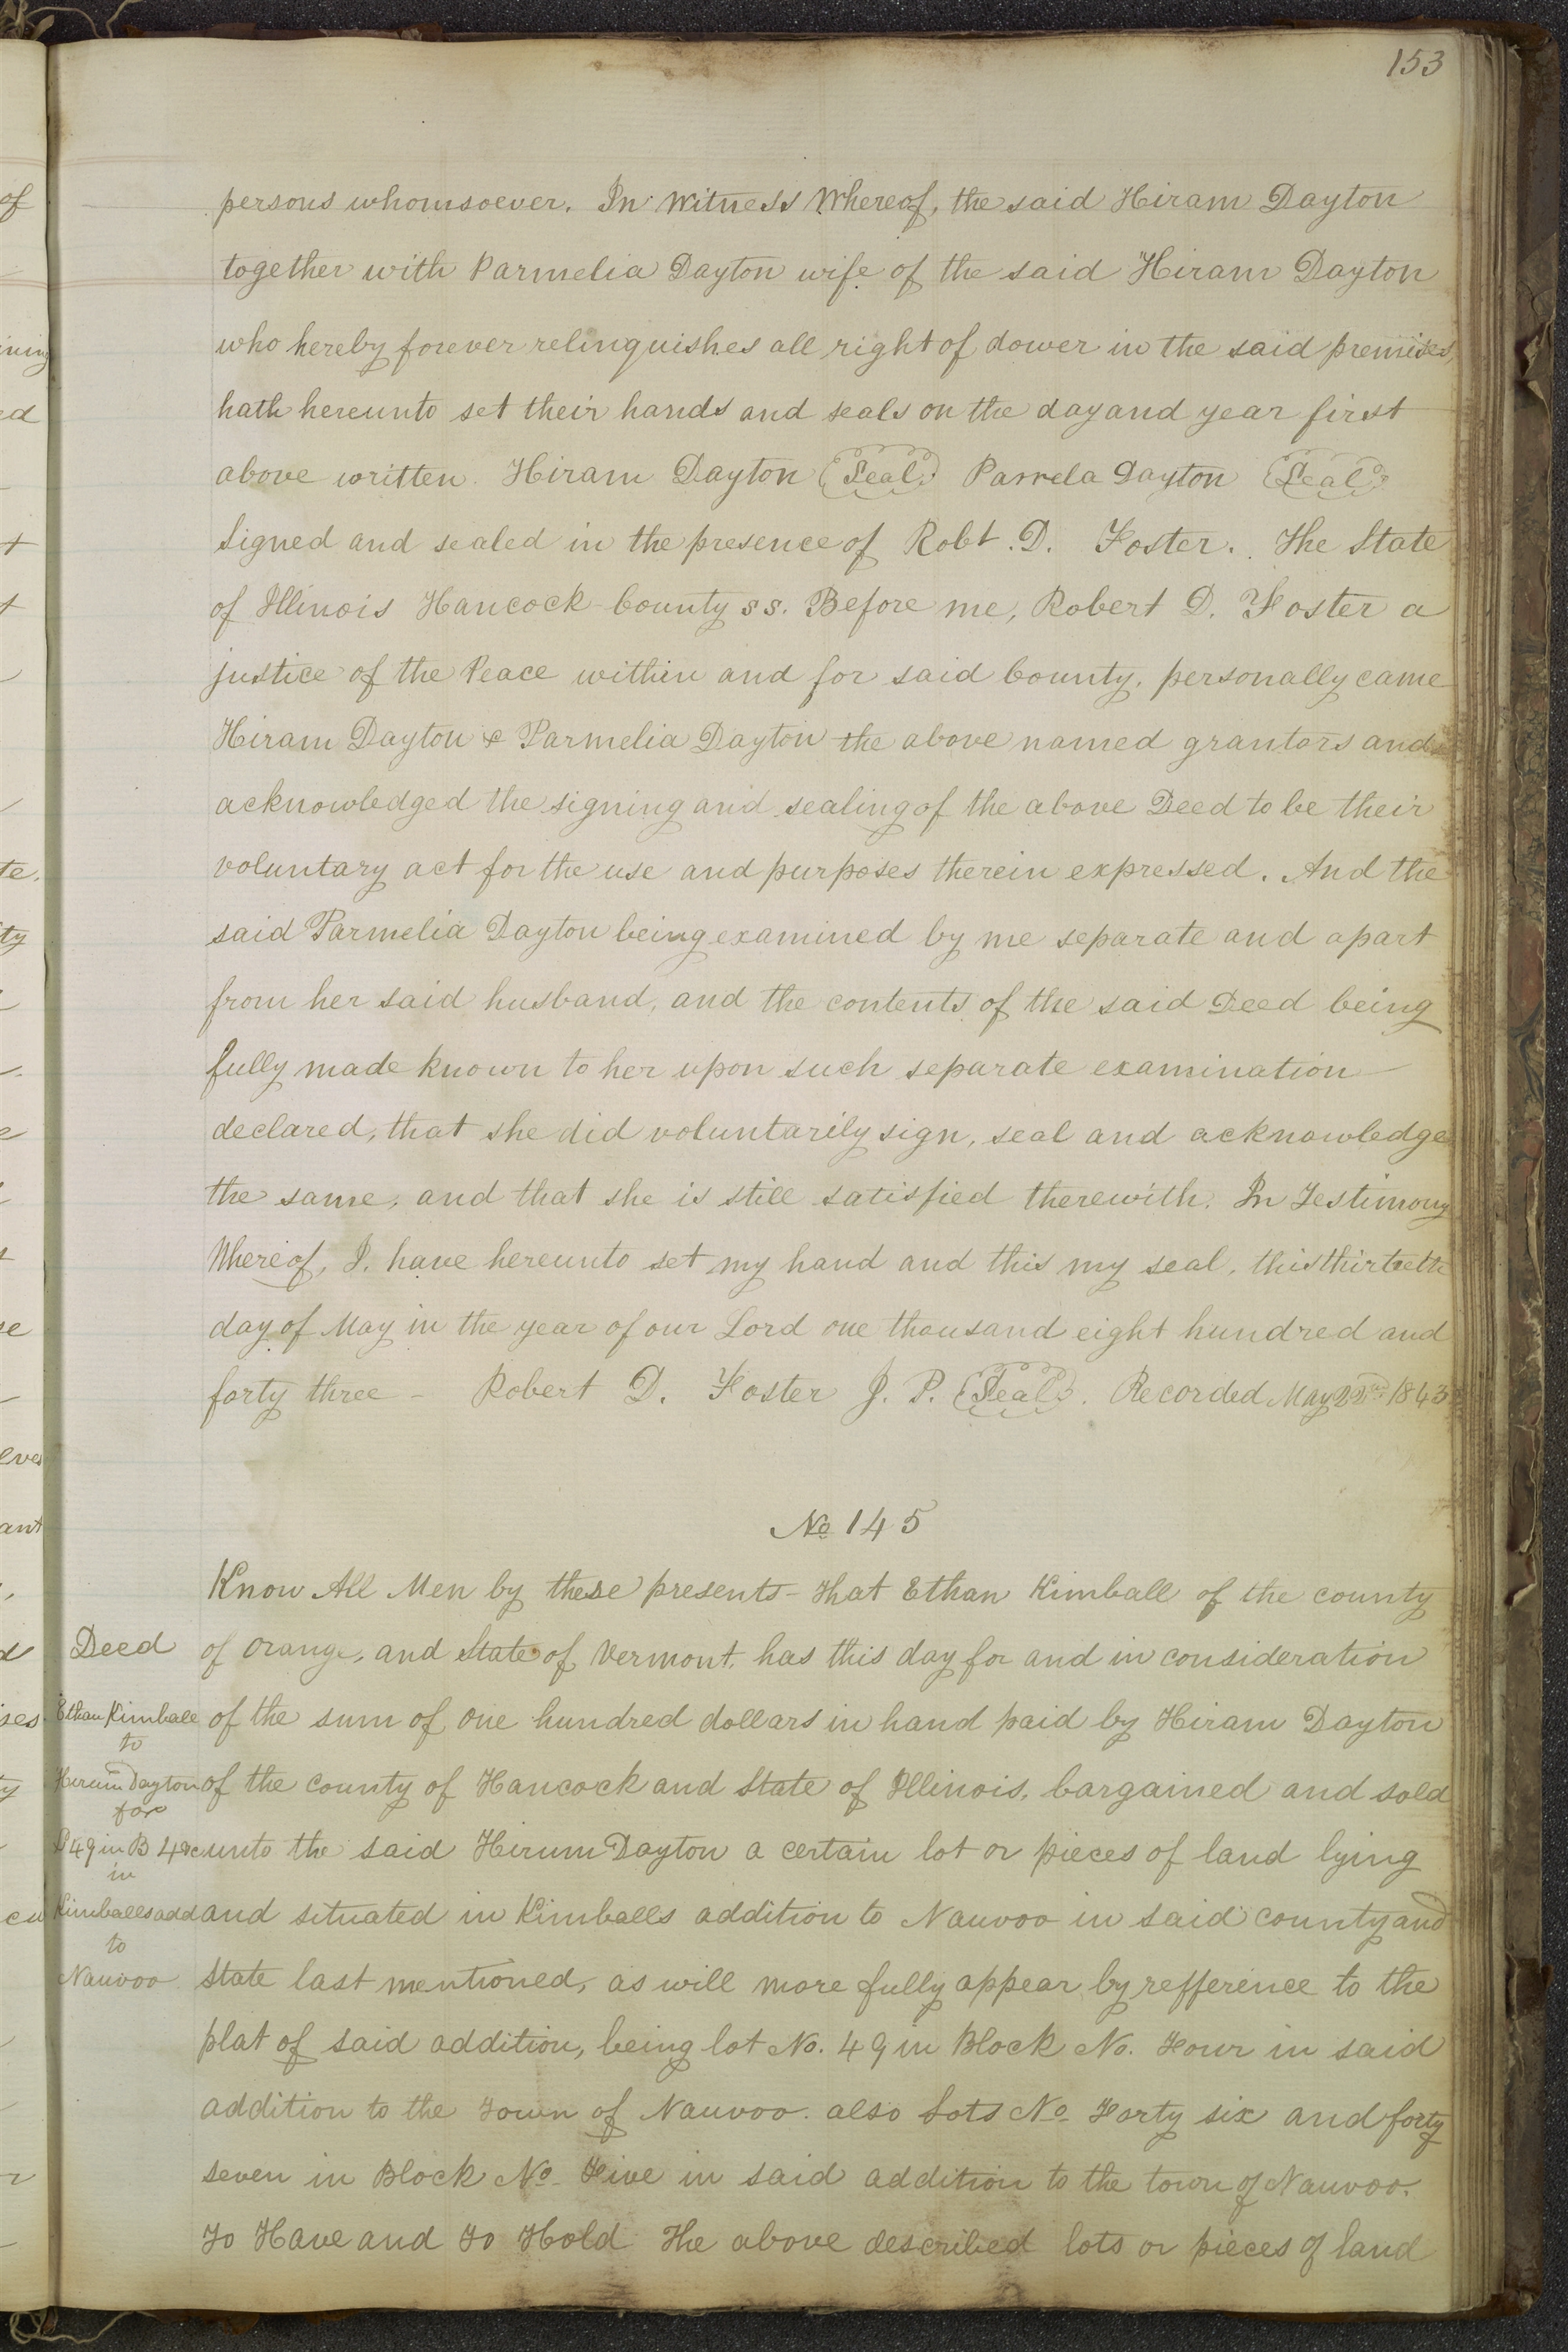 153
persons whomsoever. In Witness Whereof, the said Hiram Dayton
together with Parmelia Dayton wife of the said Hiram Dayton
who hereby forever relinquishes all right of dower in the said premises,
hath hereunto set their hands and seals on the day and year first
above written. Hiram Dayton (Seal) Pamela Dayton (Seal)
Signed and sealed in the presence of Robt. D. Foster. The State
of Illinois Hancock County ss. Before me, Robert D. Foster a
justice of the Peace within and for said County, personally came
Hiram Dayton & Parmelia Dayton the above named grantors and
acknowledged the signing and sealing of the above Deed to be their
voluntary act for the use and purposes therein expressed. And the
said Parmelia Dayton being examined by me separate and apart
from her said husband, and the contents of the said Deed being
fully made known to her upon such separate examination
declared, that she did voluntarily sign, seal and acknowledge
the same, and that she is still satisfied therewith. In Testimony
Whereof, I. have hereunto set my hand and this my seal, this
day of May in the year of our Lord one thousand eight hundred and
forty three - Robert D. Foster J. P. (Seal). Recorded May 22nd 1843
No 145
Know All Men by these presents - That Ethan Kimball of the county
Deed
of Orange, and State of Vermont, has this day for and in consideration
Ethan Kimball
of the sum of one hundred dollars in hand paid by Hiram Dayton
to
Hirum Dayton
of the county of Hancock and State of Illinois, bargained and sold
for
L 49 in B 4 &c
unto the said Hirum Dayton a certain lot or pieces of land lying
in
Kimballs add
and situated in Kimballs addition to Nauvoo in said county and
to
Nauvoo
State last mentioned, as will more fully appear by refference to the
plat of said addition, being lot No. 49 in Block No. Four in said
addition to the Town of Nauvoo. also Lots No Forty six and forty
seven in Block No Five in said addition to the town of Nauvoo.
To Have and To Hold The above described lots or pieces of land